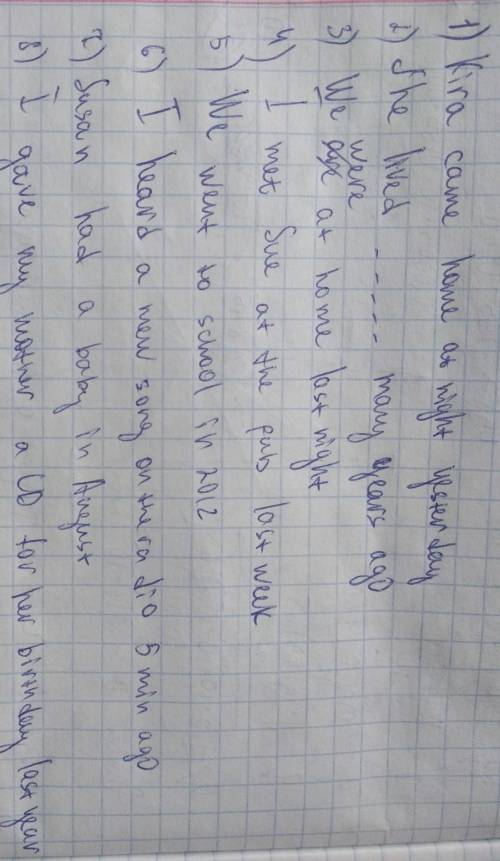 1) Kira came home at night yesterday
2) She lived ----- many years ago
3) We were at home last night
4) I met Sue at the pub last week
5) We went to school in 2012
6) I heard a new song on the radio 5 min ago
7) Susan had a baby in August
8) I gave my mother a CD for her birthday last year